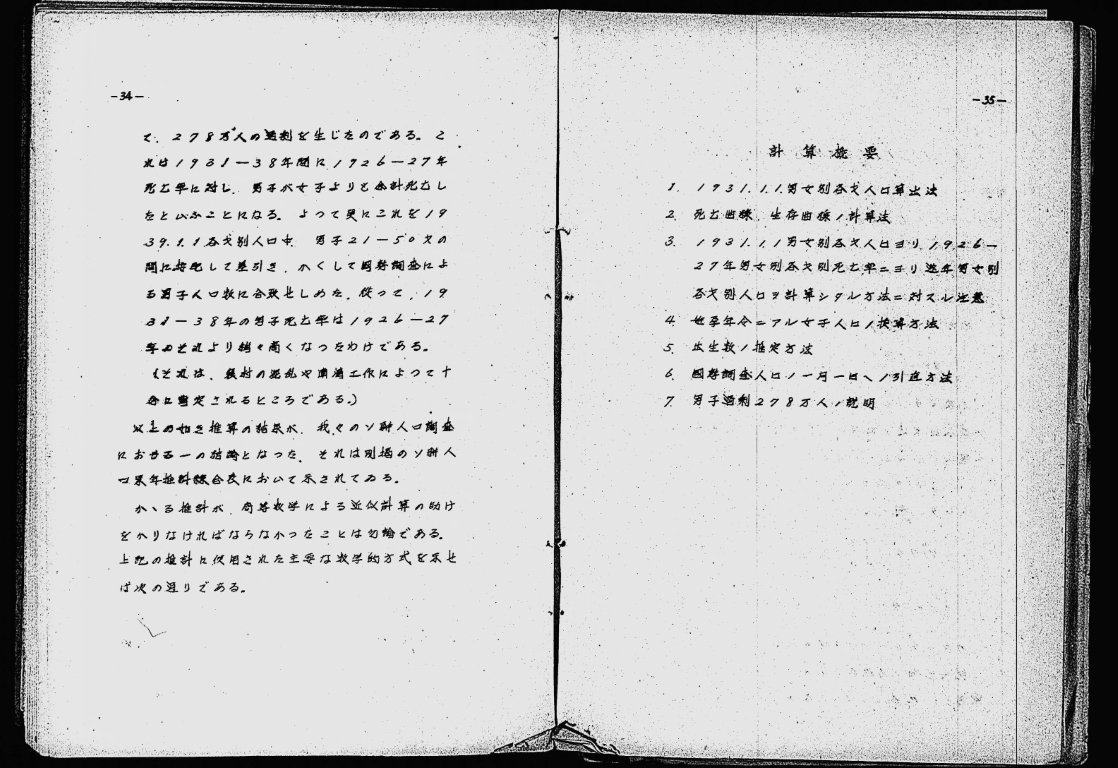 -34-
て、278万人の過剰を生じたのである。こ
れは1931-38年間に1926-27年
死亡率に対し、男子が女子よりも余計死亡し
たといふことになる。よつて更にこれを19
39.1.1各才別人口中、男子21-50才の
間に按配して差引き、かくして国勢調査によ
る男子人口数に合致せしめた。従つて、19
31-38年の男子死亡率は1926-27
年のそれより稍々高くなつたわけである。
(それは、農村の混乱や粛清工作によつて十
分に肯定されるところである。)
以上の如き推算の結果が、我々のソ聯人口調査
における一の結論となつた。それは別掲のソ聯人
口累年推計綜合表において示されてゐる。
かゝる推計が、高等数学による近似計算の助け
をへりなければならなかつたことは勿論である。
上記の推計に使用された主要な数学的方式を示せ
ば次の通りである。
-35-
計算概要
1. 1931.1.1男女別各才人口算出法
2. 死亡曲線、生存曲線ノ計算法
3. 1931.1.1男女別各才人口ヨリ、1926-
27年男女別各才別死亡率ニヨリ逐年男女別
各才別人口ヲ計算シタル方法ニ対スル注意
4. 妊孕年令ニアル女子人口ノ換算方法
5. 出生数ノ推定方法
6. 国勢調査人口ノ一月一日ヘノ引直方法
7. 男子過剰278万人ノ説明